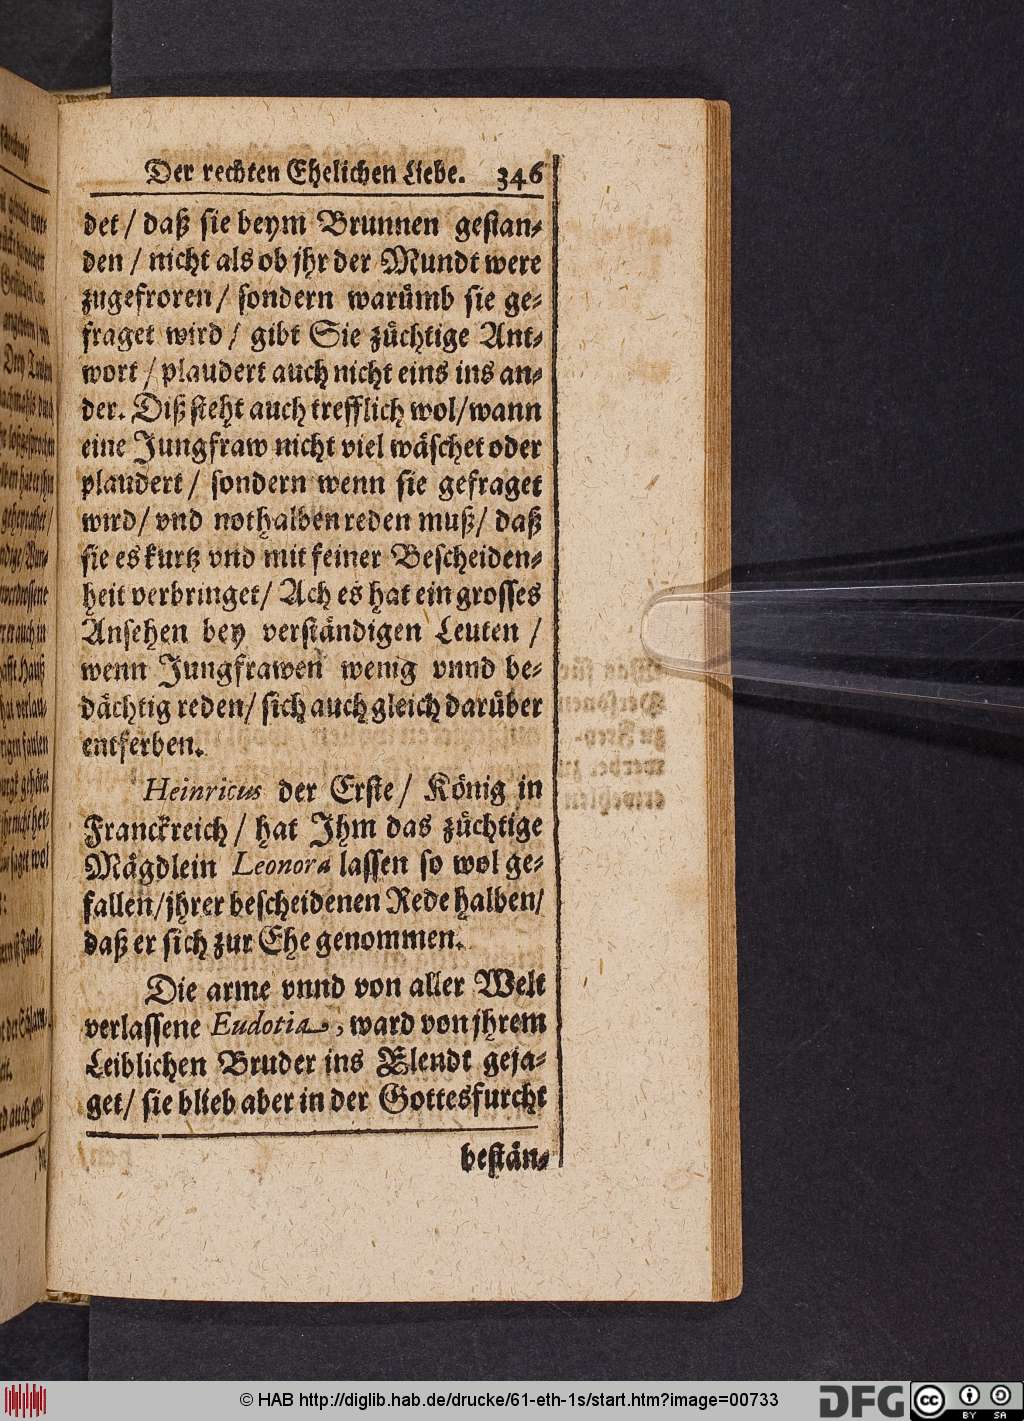 Der rechten Ehelichen Liebe. 346
det / daß sie beym Brunnen gestan-
den / nicht als ob jhr der Mundt were
zugefroren / sondern warümb sie ge-
fraget wird / gibt Sie züchtige Ant-
wort / plaudert auch nicht eins ins an-
der. Diß steht auch trefflich wol/wann
eine Jungfraw nicht viel wäschet oder
plaudert / sondern wenn sie gefraget
wird/ vnd nothalben reden muß/ daß
sie es kurtz vnd mit feiner Bescheiden-
heit verbringet/ Ach es hat ein grosses
Ansehen bey verständigen Leuten /
wenn Jungfrawen wenig vnnd be-
dächtig reden/ sich auch gleich darüber
entferben.
Heinricus der Erste/ König in
Franckreich/ hat Jhm das züchtige
Mägdlein Leonora lassen so wol ge-
fallen/jhrer bescheidenen Rede halben/
daß er sich zur Ehe genommen.
Die arme vnnd von aller Welt
verlassene Eudotia, ward von jhrem
Leiblichen Bruder ins Elendt geja-
get/ sie blieb aber in der Gottesfurcht
bestän-
© HAB http://diglib.hab.de/drucke/61-eth-1s/start.htm?image=00733
DFG
cc BY SA